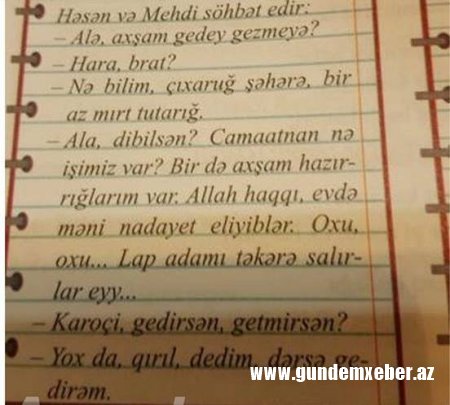 Həsən və Mehdi söhbət edir:
– Alə, axşam gedey gezmeyə?
– Hara, brat?
– Nə bilim, çıxaruğ şəhərə, bir
az mırt tutarığ.
– Ala, dibilsən? Camaatnan nə
işimiz var? Bir də axşam hazır-
rığlarım var. Allah haqqı, evdə
məni nadayet eliyiblər. Oxu,
oxu... Lap adamı təkərə salır-
lar eyy...
– Karoçi, gedirsən, getmirsən?
– Yox da, qırıl, dedim, dərsə ge-
dirəm.
www.gundemxeber.az